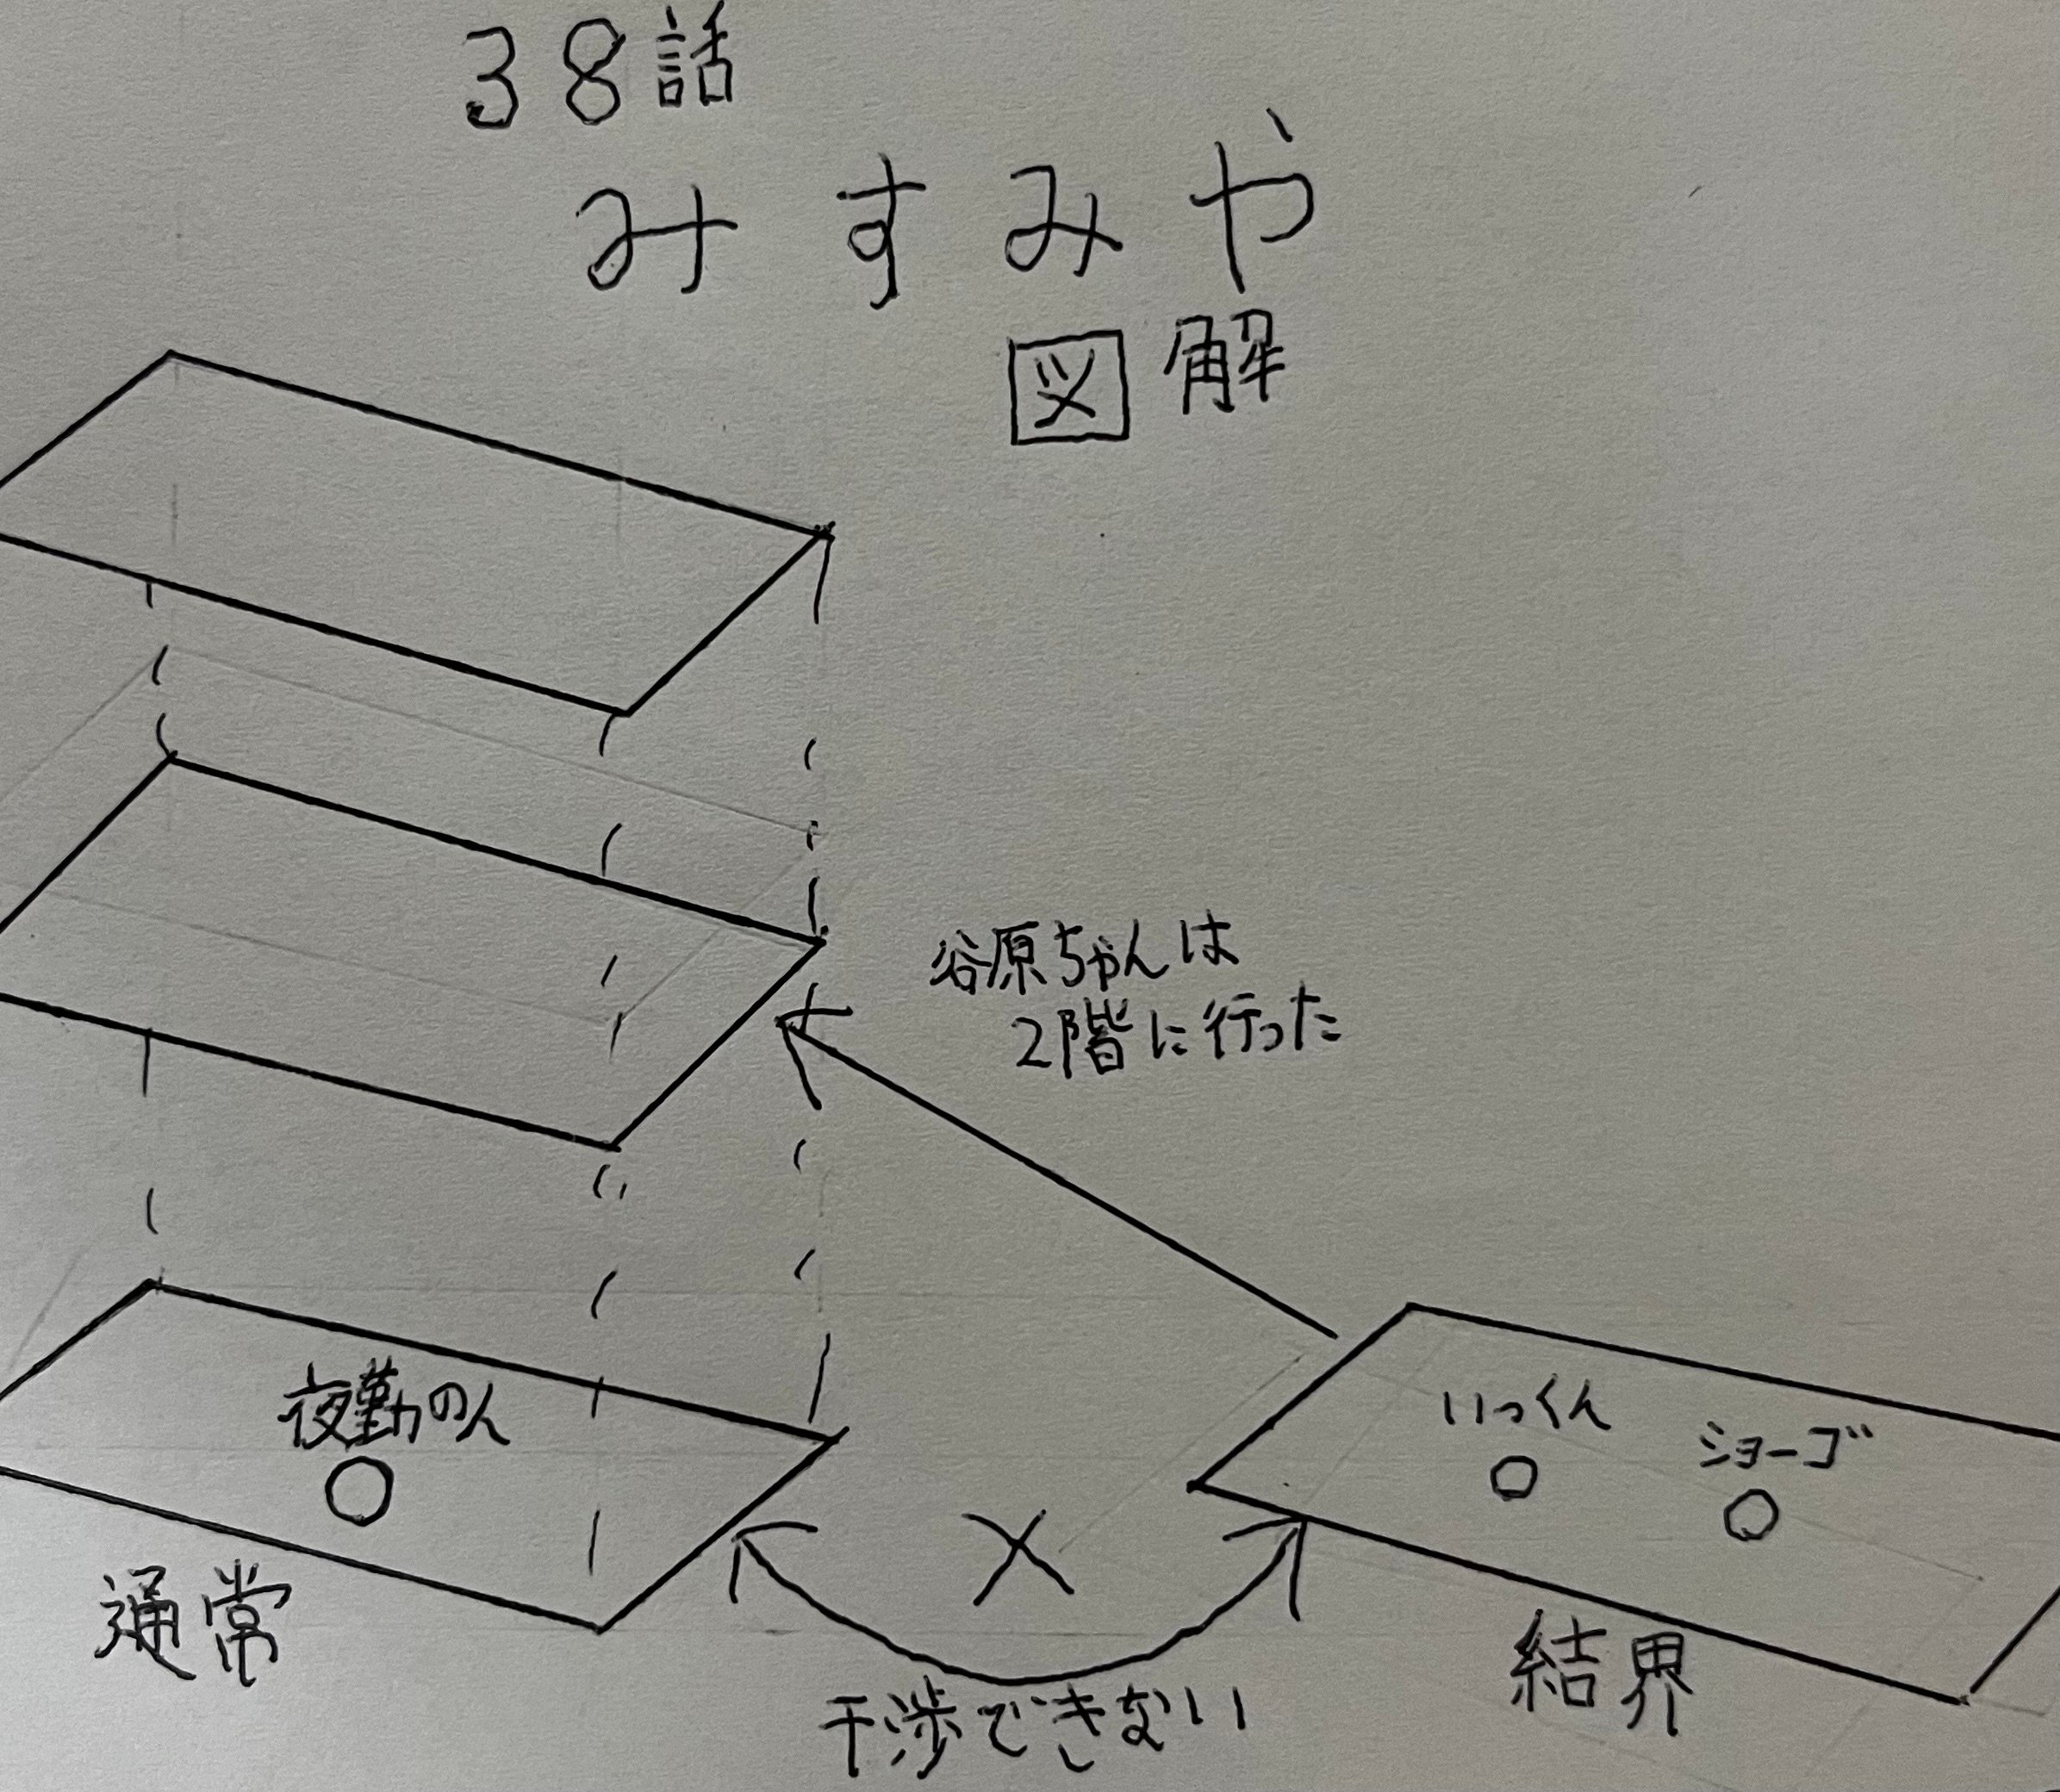 38話
みすみや
図解
谷原ちゃんは
2階に行った
夜勤の人
いっくん
ショーゴ
通常
結界
干渉できない